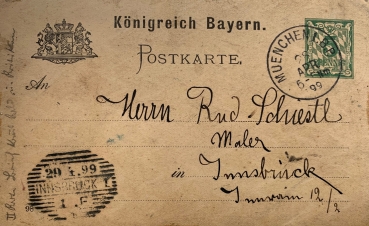 Königreich Bayern.
POSTKARTE.
MUENCHEN
APR
99
An
Herrn Rud Schiestl
Maler
in Innsbruck
Innrain 12/2
29.4.99
INNSBRUCK 1
1.F